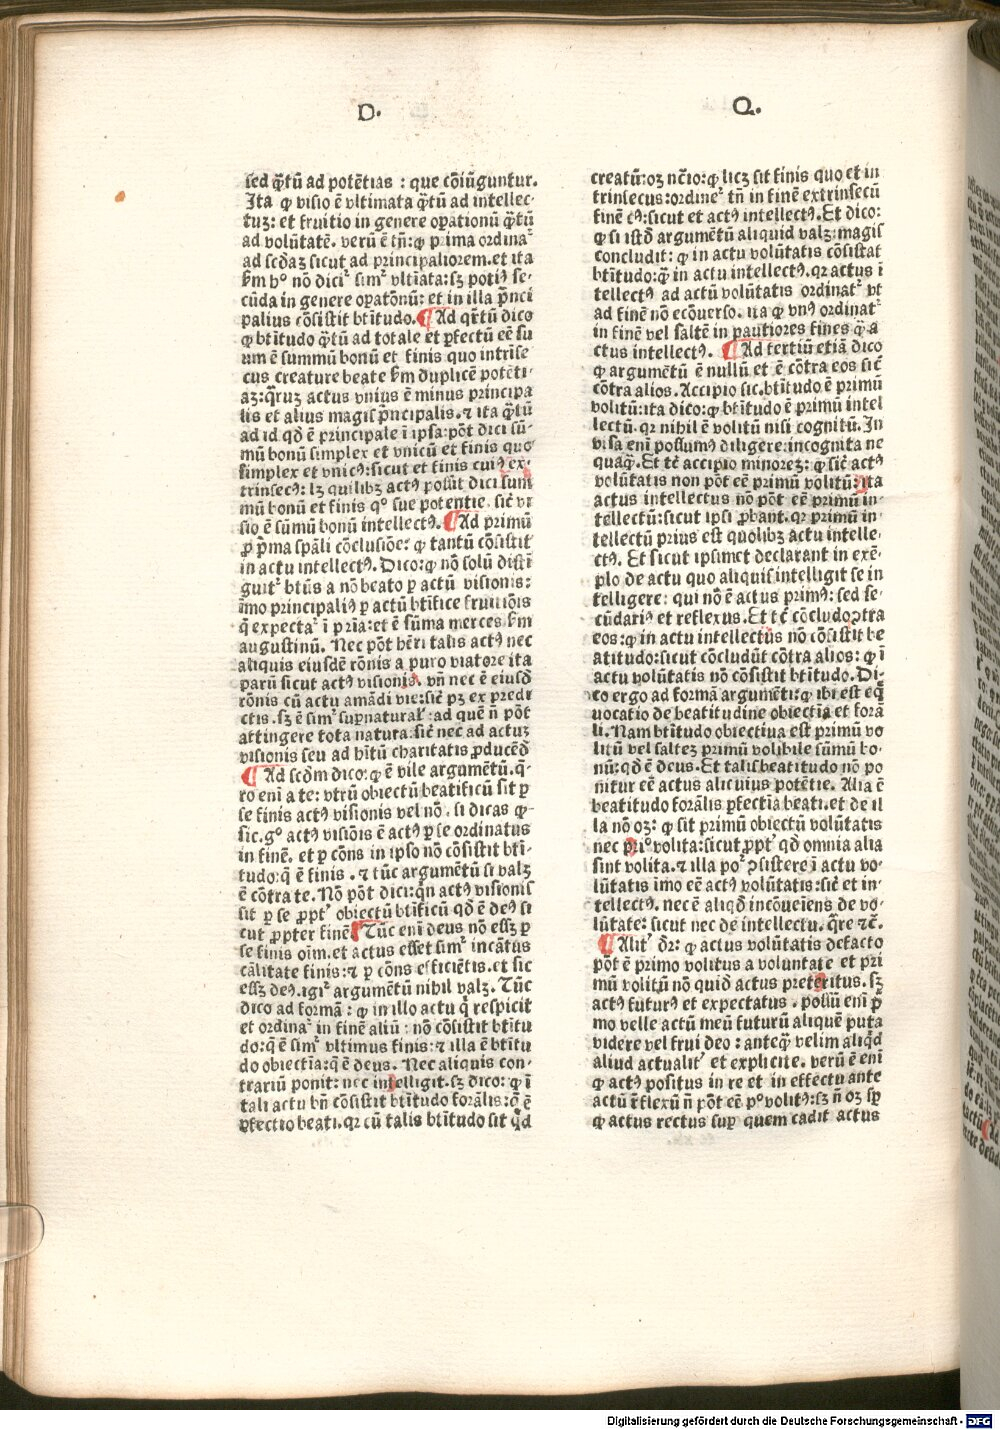 D.
Q.
sed q̃tũ ad potẽtias : que cõiũguntur.
Ita ꝙ visio ẽ vltimata q̃tũ ad intellec-
tuꝫ: et fruitio in genere oꝑationũ q̃tũ
ad volũtatẽ. verũ ẽ tñ: ꝙ prima ordinaᵗ
ad scd̃aꝫ sicut ad principaliorem. et ita
ẜm hᵒ nõ diciᵗ simᵗ vltĩata: sꝫ potiꝰ se-
cũda in genere oꝑatonũ: et in illa p̃nci
palius cõsistit bt̃itudo. ¶ Ad qr̃tũ dico
ꝙ bt̃itudo q̃tũ ad totale et ꝑfectũ eẽ su
um ẽ summũ bonũ et finis quo intrĩse
cus creature beate ẜm duplicẽ potẽti-
aꝫ: q̃ruꝫ actus vnius ẽ minus principa
lis et alius magis p̃ncipalis. ⁊ ita q̃tũ
ad id qd̃ ẽ principale ĩ ipsa: põt dici sũ-
mũ bonũ simplex et vnicũ et finis quo
simplex et vnicꝰ: sicut et finis cuiꝰ ex-
trinsecꝰ: lꝫ quilibꝫ actꝰ possit dici sum
mũ bonũ et finis qᵒ sue potentie. sic̃ vi
sio ẽ sũmũ bonũ intellectꝰ. ¶ Ad primũ
ꝓ p̃ma spãli cõclusiõe: ꝙ tantũ cõsistit
in actu intellectꝰ. Dico: ꝙ nõ solũ disti
guitᵗ bt̃us a nõ beato ꝑ actũ visionis:
ĩmo principaliꝰ ꝑ actũ bt̃ifice fruitiõis
q̃ expectaᵗ ĩ pr̃ia: et ẽ sũma merces ẜm
augustinũ. Nec põt hẽri talis actꝰ nec
aliquis eiusdẽ rõnis a puro viatore ita
parũ sicut actꝰ visionis. vñ nec ẽ eiusd̃
rõnis cũ actu amãdi vie: sic̃ pꝫ ex predi
ctis. sꝫ ẽ simᵗ supr̃naturalᵗ: ad quẽ ñ põt
attingere tota natura: sic̃ nec ad actuꝫ
visionis seu ad hĩtũ charitatis ꝓducẽd̃
¶ Ad scdm dico: ꝙ ẽ vile argumẽtũ. q̃-
ro enĩ a te: vtrũ obiectũ beatificũ sit ꝑ
se finis actꝰ visionis vel nõ. si dicas ꝙ
sic. gᵒ actꝰ visiõis ẽ actꝰ ꝑ se ordinatus
in finẽ. et ꝑ cõns in ipso nõ cõsistit bt̃i-
tudo: q̃ ẽ finis. ⁊ tũc argumẽtũ si valꝫ
ẽ cõtra te. Nõ põt dici: qñ actꝰ visionis
sit ꝑ se ꝓptᵗ obiectũ bt̃ificũ qd̃ ẽ deꝰ si
cut ꝓpter finẽ. ¶ Tũc enĩ deus nõ essꝫ ꝑ
se finis oĩm. et actus esset simᵗ incãtus
cãlitate finis: ⁊ ꝑ cõns efficiẽtis. et sic
essꝫ deꝰ. igiᵗ argumẽtũ nihil valꝫ. Tũc
dico ad formã: ꝙ in illo actu q̃ respicit
et ordinaᵗ in finẽ aliũ: nõ cõsistit bt̃itu
do: q̃ ẽ simᵗ vltimus finis: ⁊ illa ẽ bt̃itu
do obiectĩa: q̃ ẽ deus. Nec aliquis con-
trariũ ponit: nec intelligit. sꝫ dico: ꝙ ĩ
tali actu bñ cõsistit bt̃itudo forãlis: q̃ ẽ
ꝑfectio beati. qꝛ cũ talis bt̃itudo sit q̃d
creatũ: oꝫ nc̃io: ꝙ licꝫ sit finis quo et in
trinsecus: ordineᵗ tñ in finẽ extrinsecũ
finẽ tꝰ: sicut et actꝰ intellectꝰ. Et dico:
ꝙ si istd̃ argumẽtũ aliquid valꝫ: magis
concludit: ꝙ in actu volũtatis cõsistat
bt̃itudo: q̃ in actu intellectꝰ. qꝛ actus ĩ
tellectꝰ ad actũ volũtatis ordinatᵗ vt
ad finẽ nõ ecõuerso. ita ꝙ vnꝰ ordinatᵗ
in finẽ vel saltẽ in pautiores fines q̃ a
ctus intellectꝰ. ¶ Ad tertiũ etiã dico
ꝙ argumẽtũ ẽ nullũ et ẽ cõtra eos sic̃
cõtra alios. Accipio sic. bt̃itudo ẽ primũ
volitũ: ita dico: ꝙ bt̃itudo ẽ primũ intel
lectũ. qꝛ nihil ẽ volitũ nisi cognitũ. In
visa enĩ possumꝰ diligere: incognita ne
quaq̃. Et tc̃ accipio minoreꝫ: ꝙ sic̃ actꝰ
volũtatis non põt eẽ primũ volitũ: ita
actus intellectus nõ põt eẽ primũ in-
tellectũ: sicut ipsi ꝓbant. qꝛ primũ in-
tellectũ prius est quolibꝫ actu intelle-
ctꝰ. Et sicut ipsimet declarant in exẽ-
plo de actu quo aliquis intelligit se in
telligere: qui nõ ẽ actus primꝰ: sed se-
cũdariꝰ et reflexus. Et tc̃ cõcludo ↄtra
eos: ꝙ in actu intellectus nõ cõsistit be
atitudo: sicut cõcludũt cõtra alios: ꝙ ĩ
actu volũtatis nõ cõsistit bt̃itudo. Di-
co ergo ad formã argumẽti: ꝙ ibi est eq̃
uocatio de beatitudine obiectĩa et forã
li. Nam bt̃itudo obiectiua est primũ vo
litũ vel salteꝫ primũ volibile sũmũ bo-
nũ: qd̃ ẽ deus. Et talis beatitudo nõ po
nitur eẽ actus alicuius potẽtie. Alia ẽ
beatitudo forãlis ꝑfectĩa beati. et de il
la nõ oꝫ: ꝙ sit primũ obiectũ volũtatis
nec priᵒ volita: sicut ꝓptᵗ qd̃ omnia alia
sint volita. ⁊ illa põᵗ ↄsistere ĩ actu vo-
lũtatis imo eẽ actꝰ volũtatis: sic̃ et in-
tellectꝰ. nec ẽ aliqd̃ incõueiẽns de vo-
lũtate: sicut nec de intellectu. q̃re ⁊c̃.
¶ Alitᵗ dr̃: ꝙ actus volũtatis defacto
põt ẽ primo volitus a voluntate et pri
mũ volitũ nõ quid actus preteritus. sꝫ
actꝰ futurꝰ et expectatus. possũ enĩ p̃
mo velle actũ meũ futurũ aliquẽ puta
videre vel frui deo: anteq̃ velim aliqd̃
aliud actualitᵗ et explicite. verũ ẽ enĩ
ꝙ actꝰ positus in re et in effectu ante
actũ r̃flexũ ñ põt eẽ pᵒ volitꝰ: sꝫ ñ oꝫ sp̃
ꝙ actus rectus supᵗ quem cadit actus
Digitalisierung gefördert durch die Deutsche Forschungsgemeinschaft - DFG